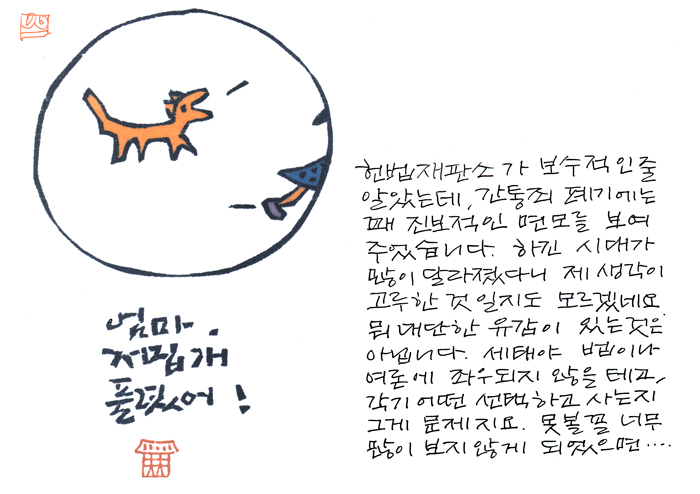 엄마,
저집개
풀렸어!
헌법재판소가 보수적인줄
알았는데, 간통죄 폐기에는
꽤 진보적인 면모를 보여
주었습니다. 하긴 시대가
많이 달라졌다니 제 생각이
고루한 것일지도 모르겠네요.
뭐 대단한 유감이 있는것은
아닙니다. 세태야 법이나
여론에 좌우되지 않을 테고,
각기 어떤 선택하고 사는지
그게 문제지요. 못볼꼴 너무
많이 보지않게 되었으면....